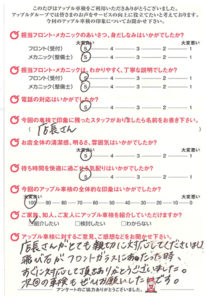 このたびはアップル車検をご利用いただきありがとうございました。
アップルグループではお客さまのお声をサービスの向上に役立てたいと考えております。
今回のアップル車検の印象についてお聞かせ下さい。
担当フロント・メカニックのあいさつ、身だしなみはいかがでしたか?
大変良い 大変悪い
フロント(受付) 5 4 3 2 1
メカニック(整備士) 5 4 3 2 1
担当フロント・メカニックは、わかりやすく、丁寧な説明でしたか?
大変良い 大変悪い
フロント(受付) 5 4 3 2 1
メカニック(整備士) 5 4 3 2 1
電話の対応はいかがでしたか?
大変良い 大変悪い
5 4 3 2 1
今回の車検で印象に残ったスタッフがおりましたら名前をお書き下さい。
( 店長さん )
お店全体の清潔感、明るさ、雰囲気はいかがでしたか?
大変良い 大変悪い
5 4 3 2 1
待ち時間を快適に過ごせる気配りはいかがでしたか?
大変良い 大変悪い
5 4 3 2 1
今回のアップル車検の全体的な印象はいかがでしたか?
大変良い 大変悪い
100 90 80 70 60 50 40 30 20 10 0
ご家族、知人、ご友人にアップル車検を紹介していただけますか?
紹介したい 検討したい わからない
アップル車検に対するご意見、ご感想などをお聞かせ下さい。
店長さんがとても親切に対応してくださいました。
飛び石がフロントガラスにあたった時、
すぐに対応して頂きありがとうございました。
次回の車検もぜひお願いしたいです。
アンケートのご協力ありがとうございました。